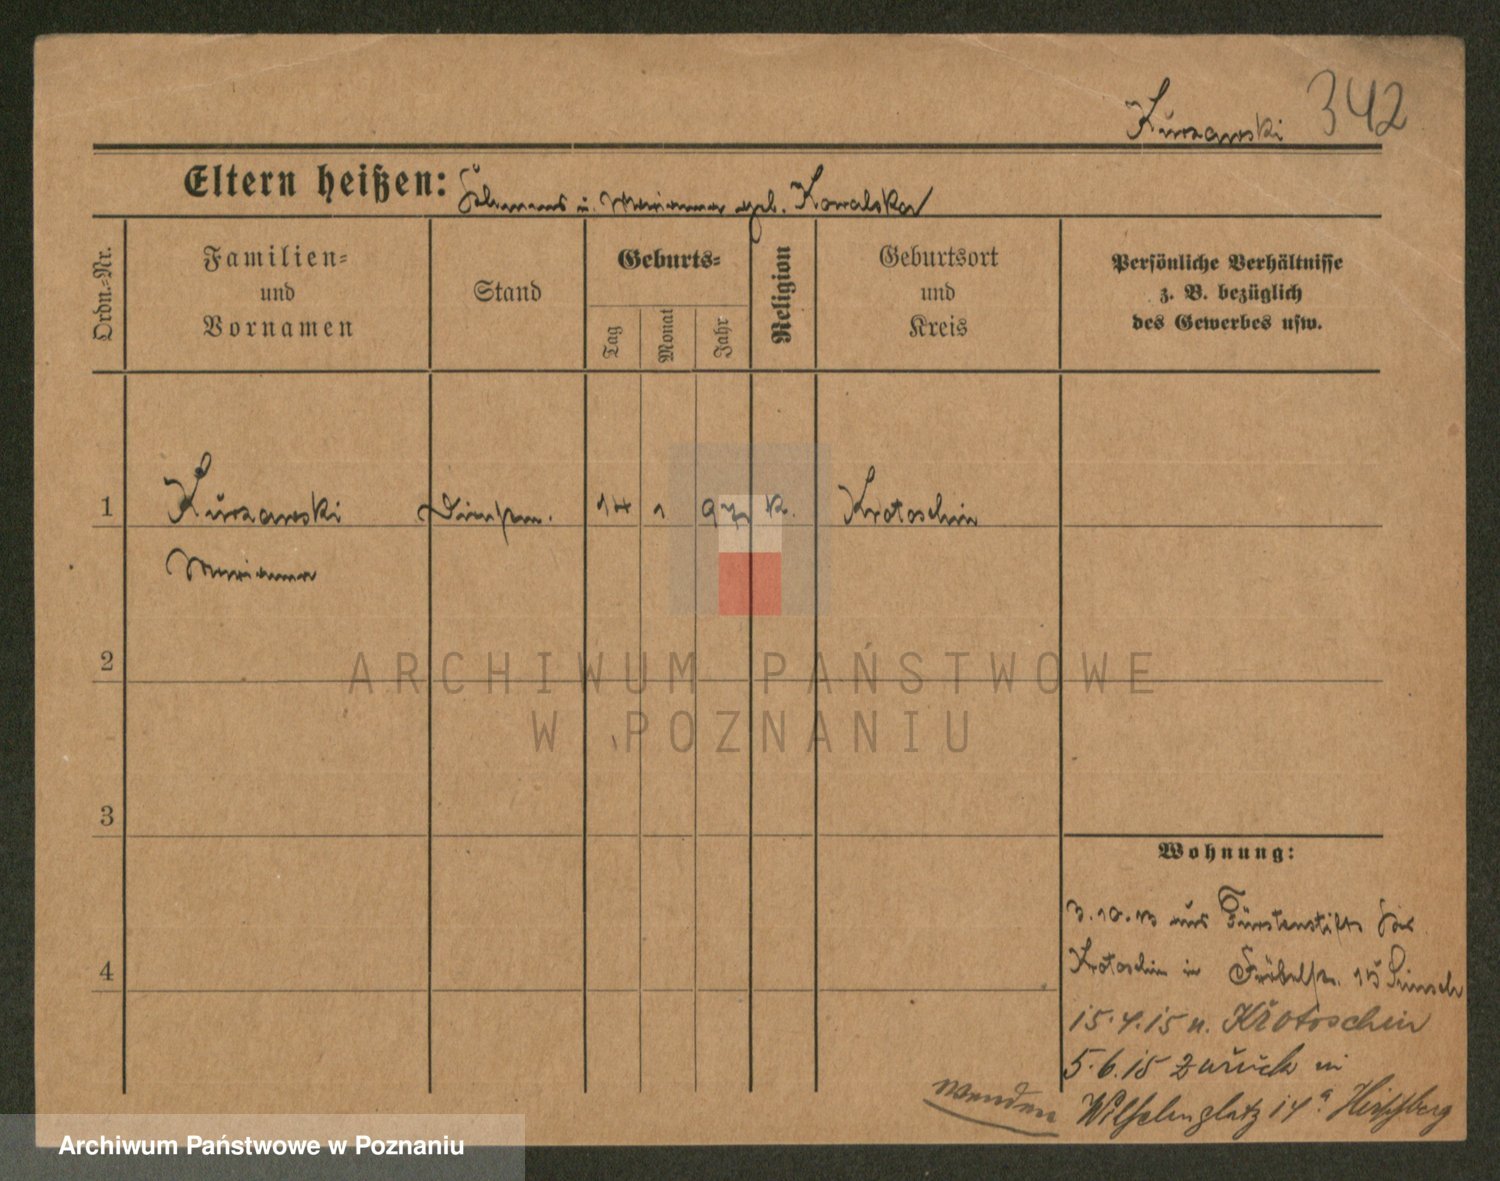 Kurzawski 342
Eltern heißen: u. Marianna geb. Kowalska
Ordn.-Nr.
Familien-
und
Vornamen
Stand
Geburts-
Tag
Monat
Jahr
Religion
Geburtsort
und
Kreis
Persönliche Verhältnisse
z. B. bezüglich
des Gewerbes usw.
1 Kurzawski 14 1 97 k. Krotoschin
Marianna
2
3
4
ARCHIWUM PAŃSTWOWE
W POZNANIU
Wohnung:
3.10.13 aus Fürstenstift
Krotoschin in Fröbelstr. 15
15.4.15 n. Krotoschin
5.6.15 zurück in
Wilhelmplatz 14a. Hirschberg
wenden
Archiwum Państwowe w Poznaniu